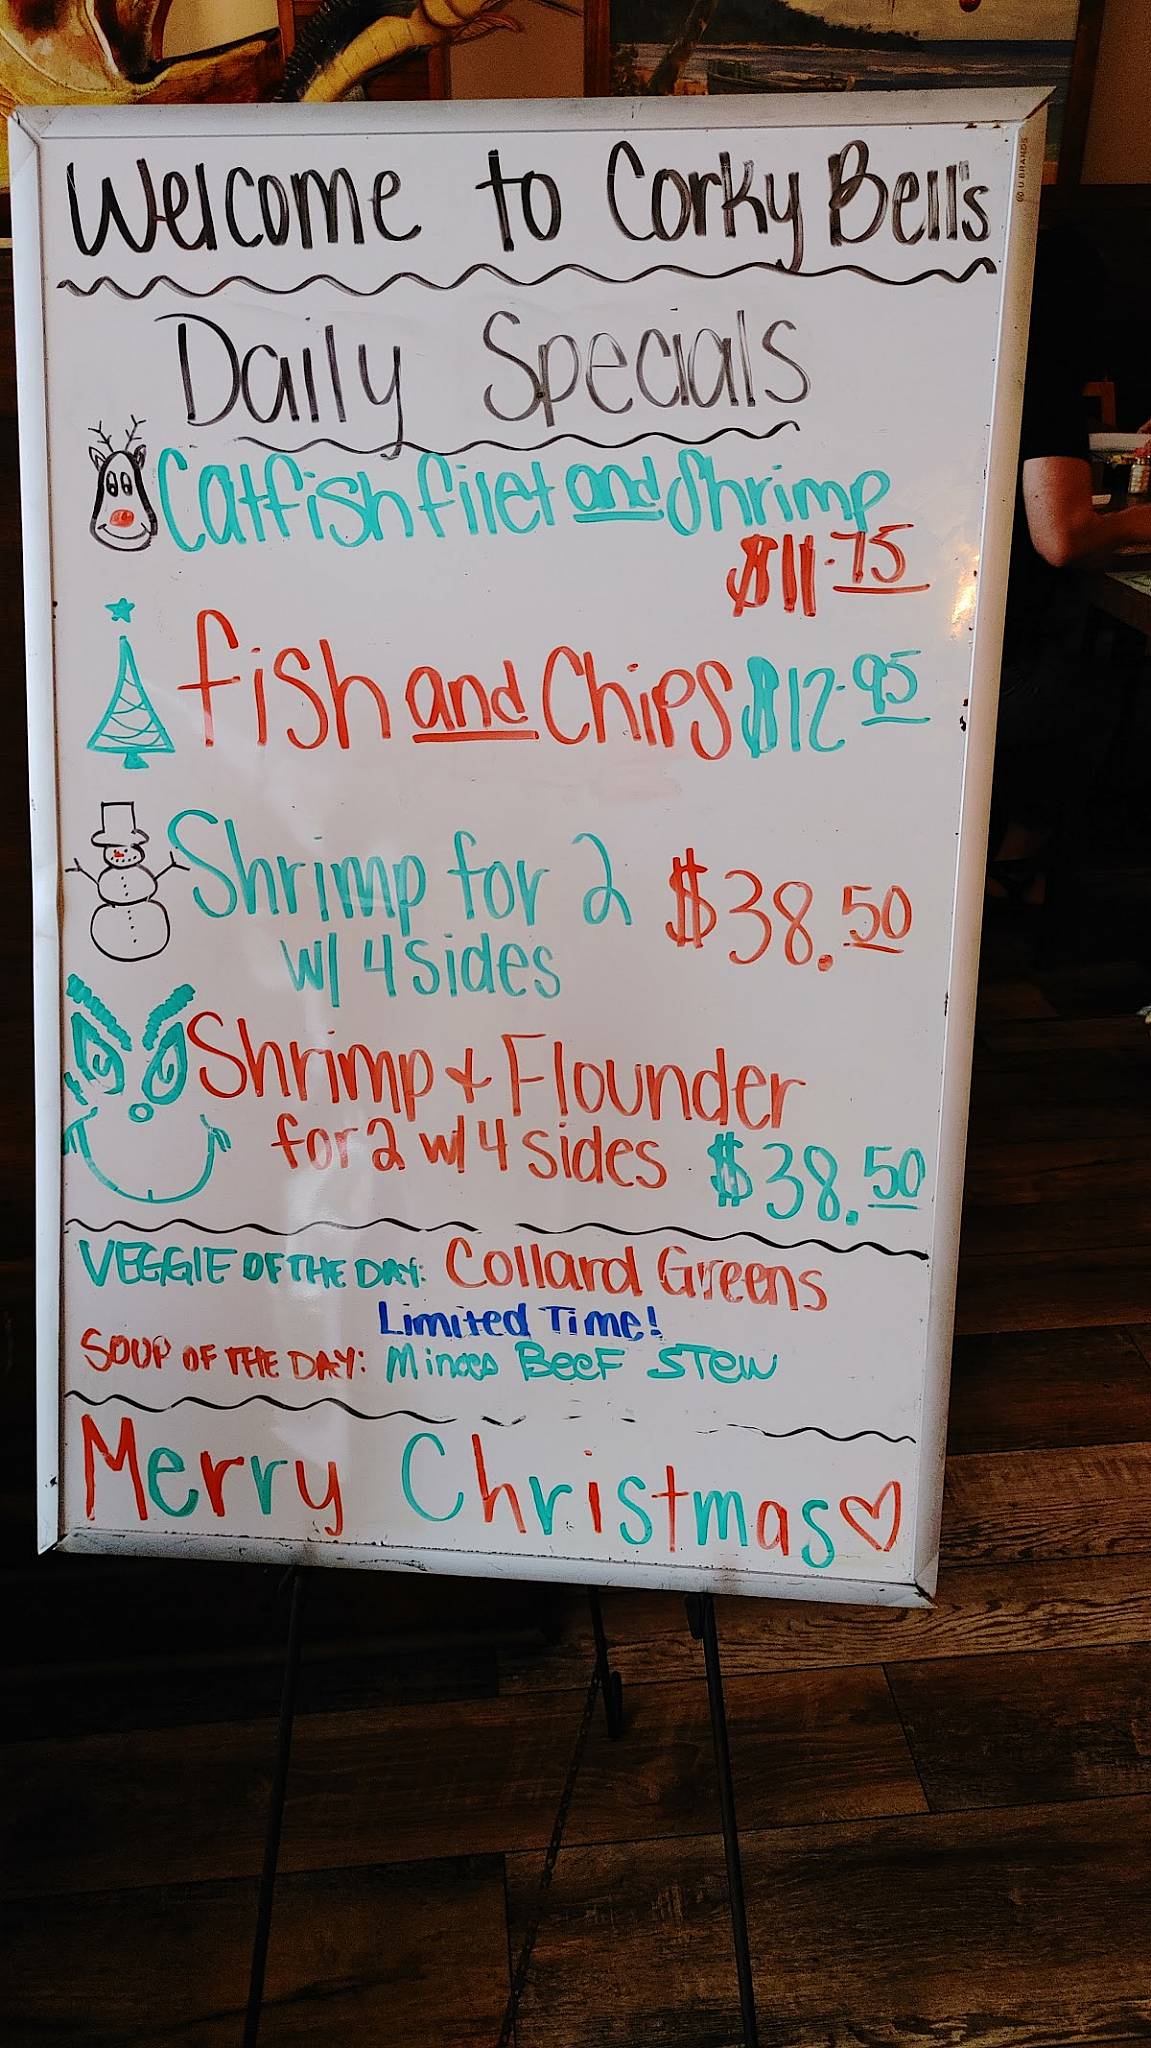 Welcome to Corky Bell's
Daily Specials
Catfish filet and Shrimp
$11.75
fish and Chips $12.95
Shrimp for 2 $38.50
w/ 4 sides
Shrimp + Flounder
for 2 w/ 4 sides $38.50
VEGGIE OF THE DAY: Collard Greens
Limited Time!
SOUP OF THE DAY: Beef Stew
Merry Christmas
U BRANDS